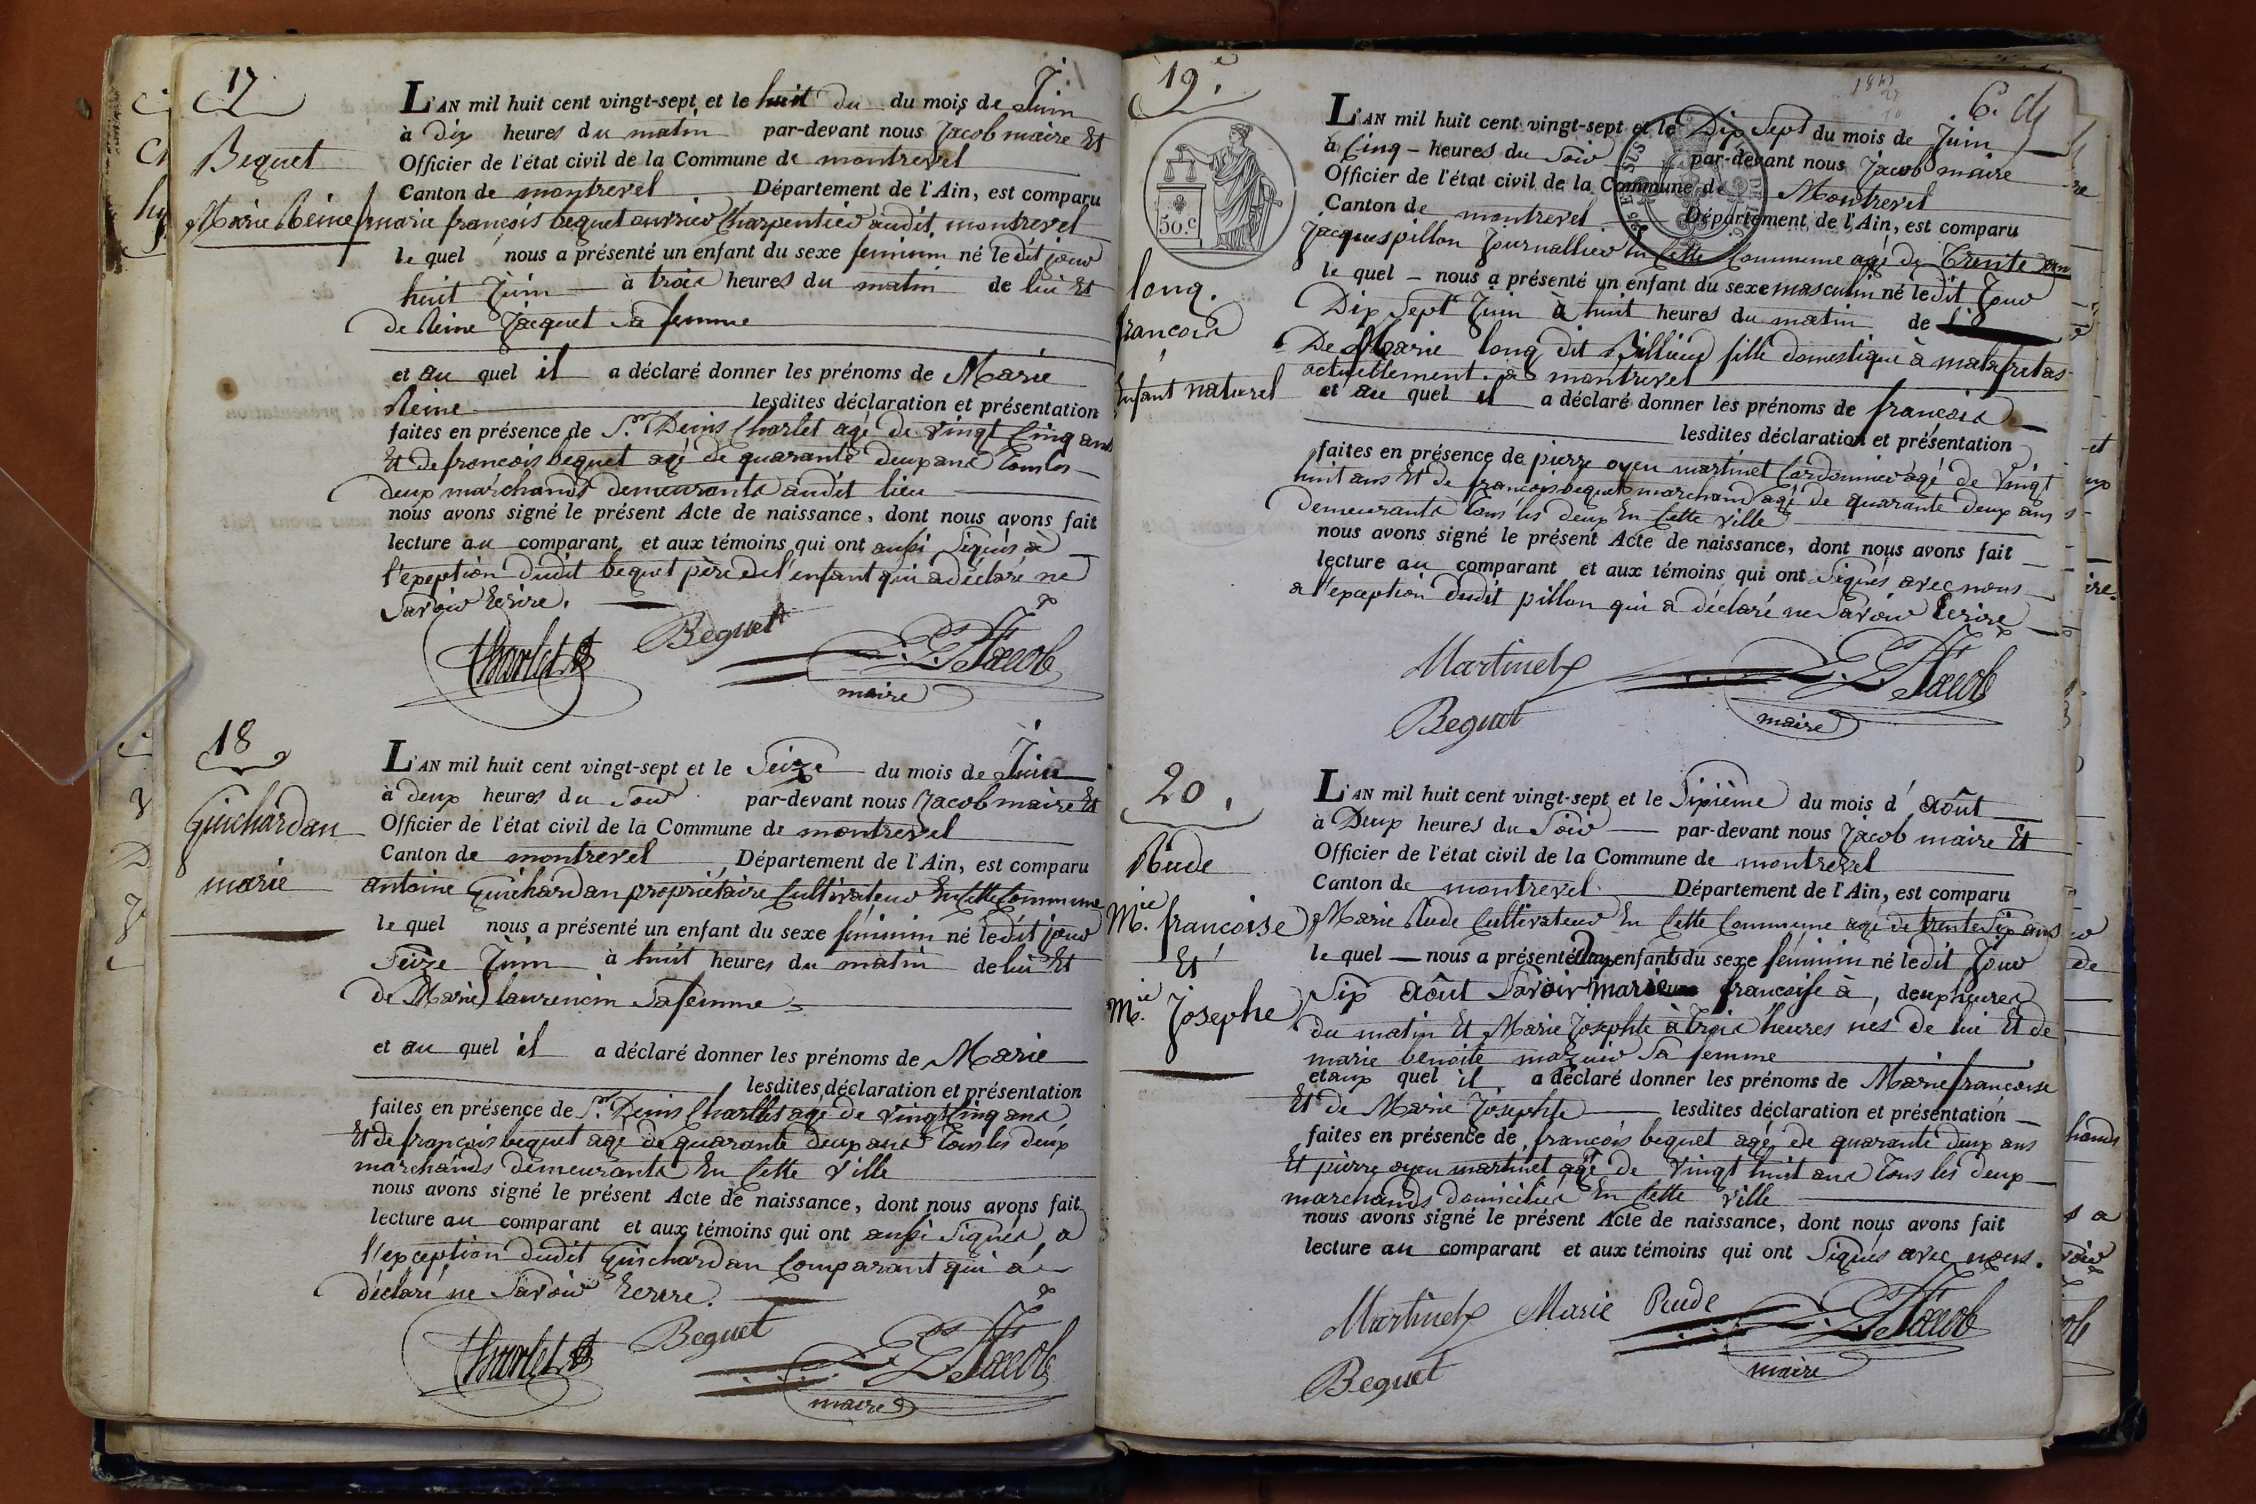 17
Bequet
Marie Reine
L'AN mil huit cent vingt-sept et le huit du du mois de Juin
à dix heures du matin par-devant nous Jacob maire Et
Officier de l'état civil de la Commune de montrevel
Canton de montrevel Département de l'Ain, est comparu
marie françois bequet ouvrier Charpentier audit montrevel
le quel nous a présenté un enfant du sexe feminin né ledit jour
huit Juin à trois heures du matin de lui Et
de Reine Jacquet Sa femme
et au quel il a déclaré donner les prénoms de Marie
Reine lesdites déclaration et présentation
faites en présence de Sr. Denis Charlet agé de vingt Cinq ans
Et de francois bequet agé de quarante deux ans tous les
deux marchands demeurants audit lieu
nous avons signé le présent Acte de naissance, dont nous avons fait
lecture au comparant et aux témoins qui ont aussi Signés à
l'exeption dudit bequet père de l'enfant qui a déclaré ne
Savoir Ecrire.
Charlet
Bequet
Jacob
maire
18
Guichardan
marie
L'AN mil huit cent vingt-sept et le Seize du mois de Juin
à deux heures du Soir par-devant nous Jacob maire Et
Officier de l'état civil de la Commune de montrevel
Canton de montrevel Département de l'Ain, est comparu
antoine Guichardan propriétaire Cultivateur En Cette Commune
le quel nous a présenté un enfant du sexe féminin né ledit jour
Seize Juin à huit heures du matin de lui Et
de Marie laurencin Sa femme
et au quel il a déclaré donner les prénoms de Marie
lesdites déclaration et présentation
faites en présence de Sr. Denis Charlet agé de vingt Cinq ans
Et de françois bequet agé de quarante deux ans tous les deux
marchands demeurants En Cette ville
nous avons signé le présent Acte de naissance, dont nous avons fait
lecture au comparant et aux témoins qui ont aussi Signés a
l'exception dudit Guichardan Comparant qui a
déclaré ne Savoir Ecrire.
Charlet
Bequet
Jacob
maire
19.
6.
50.c
long.
francois
Enfant naturel
L'AN mil huit cent vingt-sept et le Dix Sept du mois de Juin
à Cinq heures du Soir par-devant nous Jacob maire
Officier de l'état civil de la Commune de Montrevel
Canton de montrevel Département de l'Ain, est comparu
Jacques pillon Journallier En Cette Commune agé de Trente ans
le quel nous a présenté un enfant du sexe masculin né ledit Jour
Dix Sept Juin à huit heures du matin de
De Marie long dit Billieux fille domestique à malafretas
actuellement à montrevel
et au quel il a déclaré donner les prénoms de françois
lesdites déclaration et présentation
faites en présence de pierre oyen martinet Cordonnier agé de vingt
huit ans Et de francois bequet marchand agé de quarante deux ans
demeurants tous les deux En Cette ville
nous avons signé le présent Acte de naissance, dont nous avons fait
lecture au comparant et aux témoins qui ont Signés avec nous
a l'exception dudit pillon qui a déclaré ne Savoir Ecrire
Martinet
Jacob
Bequet
maire
20.
Rude
Mie. francoise
Et
Mie. Josephe
L'AN mil huit cent vingt-sept et le Sixième du mois d' août
à Deux heures du Soir par-devant nous Jacob maire Et
Officier de l'état civil de la Commune de montrevel
Canton de montrevel Département de l'Ain, est comparu
Marie Rude Cultivateur En Cette Commune agé de trente Six ans
le quel nous a présenté Deux enfants du sexe féminin né ledit Jour
Six août Savoir Marie françoise à deux heures
du matin Et Marie Josephte à trois heures nés de lui Et de
marie benoite mazuir Sa femme
et aux quel il a déclaré donner les prénoms de Marie françoise
Et de Marie Josephte lesdites déclaration et présentation
faites en présence de françois bequet agé de quarante deux ans
Et pierre oyen martinet agé de vingt huit ans tous les deux
marchands domiciliés En Cette ville
nous avons signé le présent Acte de naissance, dont nous avons fait
lecture au comparant et aux témoins qui ont Signés avec nous.
Martinet Marie Rude Jacob
Bequet
maire